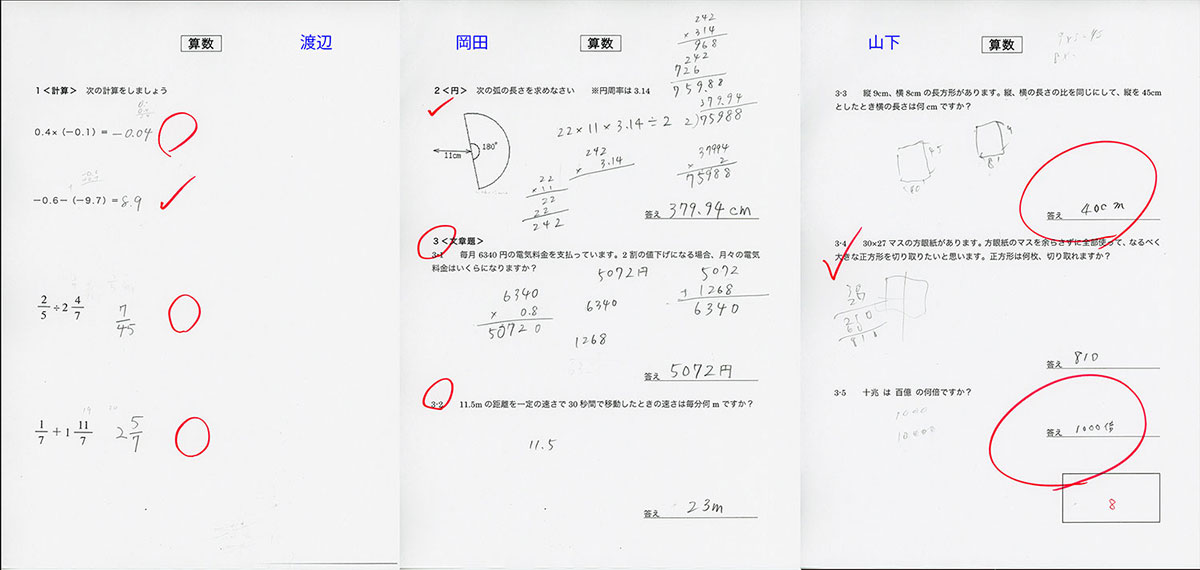 算数
渡辺
1<計算> 次の計算をしましょう
0.4×(−0.1) = −0.04
−0.6−(−9.7) = 8.9
2/5 ÷ 2 4/7 7/45
1/7 + 1 11/7 2 5/7
岡田
算数
2<円> 次の弧の長さを求めなさい ※円周率は 3.14
180°
11cm
22×11×3.14÷2
242
×314
968
242
726
75988
379.94
2)75988
242
× 3.14
37994
× 2
75988
22
×11
22
22
242
答え 379.94 cm
3<文章題>
3-1 毎月 6340 円の電気料金を支払っています。2 割の値下げになる場合、月々の電気
料金はいくらになりますか?
6340
× 0.8
50720
5072円
6340
1268
5072
+ 1268
6340
答え 5072円
3-2 11.5m の距離を一定の速さで 30 秒間で移動したときの速さは毎分何 m ですか?
11.5
答え 23m
山下
算数
3-3 縦 9cm、横 8cm の長方形があります。縦、横の長さの比を同じにして、縦を 45cm
としたとき横の長さは何 cm ですか?
45
答え 40cm
3-4 30×27 マスの方眼紙があります。方眼紙のマスを余らさずに全部使って、なるべく
大きな正方形を切り取りたいと思います。正方形は何枚、切り取れますか?
810
答え 810
3-5 十兆 は 百億 の何倍ですか?
1000
10000
答え 1000倍
8